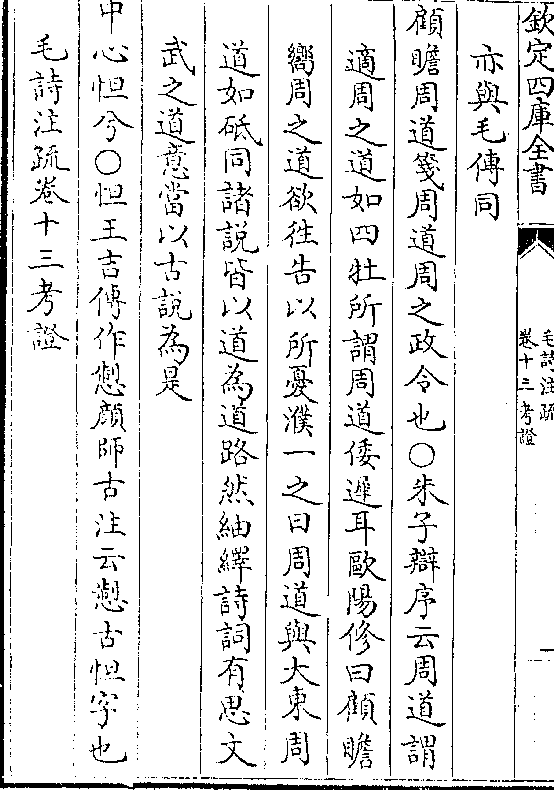 欽定四庫全書
毛詩注疏
卷十三考證
亦與毛傳同
顧瞻周道箋周道周之政令也○朱子辯序云周道謂
適周之道如四牡所謂周道倭遲耳歐陽修曰顧瞻
嚮周之道欲往告以所憂濮一之曰周道與大東周
道如砥同諸說皆以道為道路然紬繹詩詞有思文
武之道意當以古說為是
中心怛兮○怛王吉傳作𢠵顔師古注云𢠵古怛字也
毛詩注疏卷十三考證